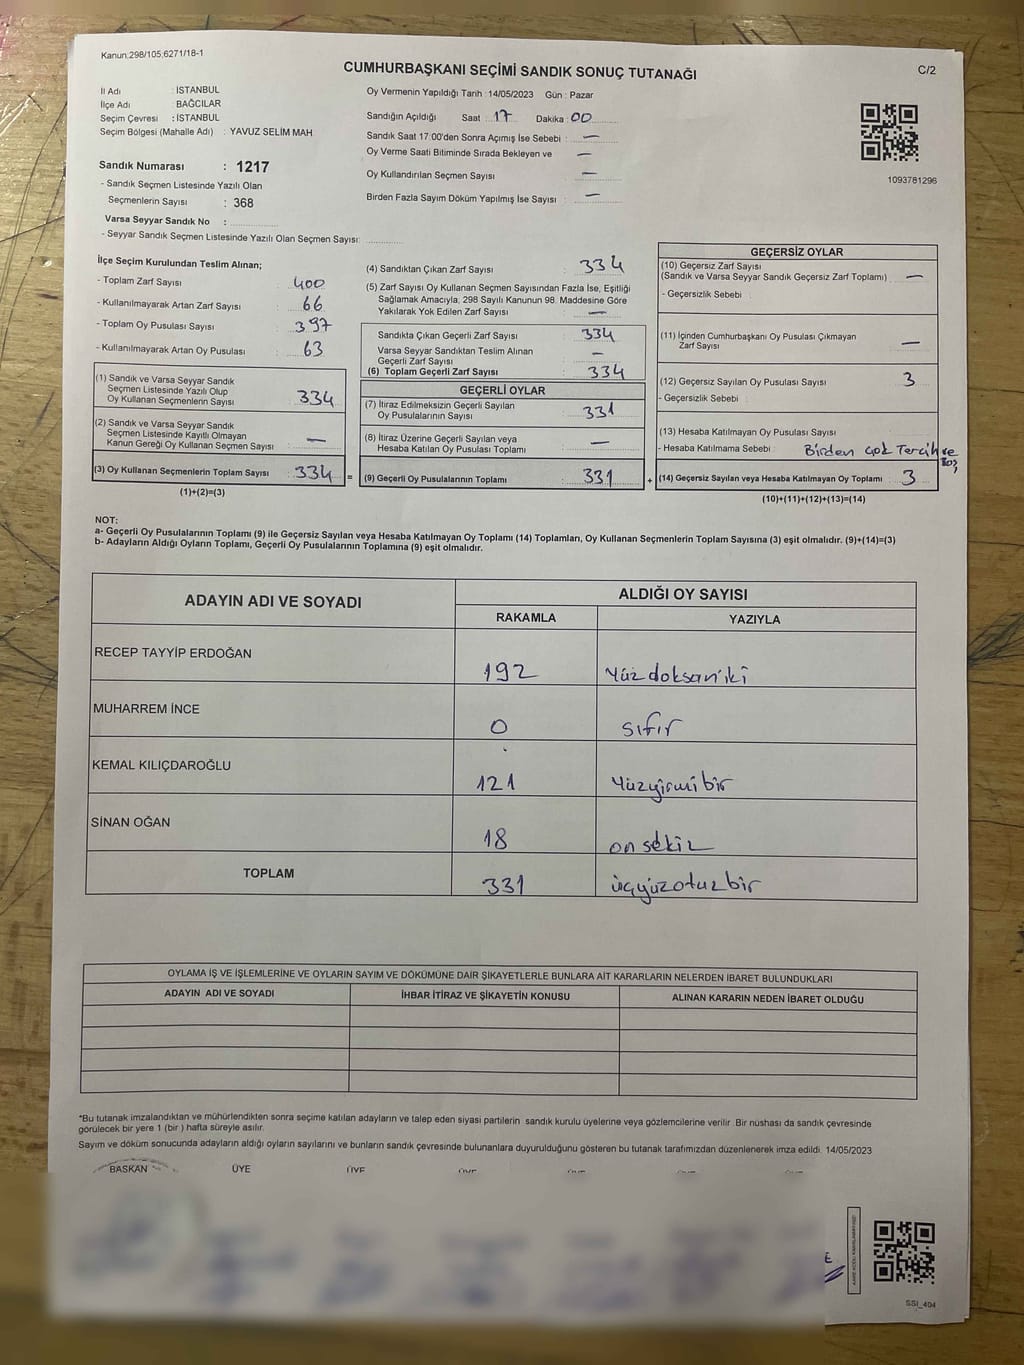 Kanun;298/105;6271/18-1
C/2
CUMHURBAŞKANI SEÇİMİ SANDIK SONUÇ TUTANAĞI
İl Adı : İSTANBUL
İlçe Adı : BAĞCILAR
Seçim Çevresi : İSTANBUL
Seçim Bölgesi (Mahalle Adı) : YAVUZ SELİM MAH
Sandık Numarası : 1217
- Sandık Seçmen Listesinde Yazılı Olan
Seçmenlerin Sayısı : 368
Varsa Seyyar Sandık No :
- Seyyar Sandık Seçmen Listesinde Yazılı Olan Seçmen Sayısı:
Oy Vermenin Yapıldığı Tarih :14/05/2023 Gün : Pazar
Sandığın Açıldığı Saat : 17 Dakika : 00
Sandık Saat 17:00'den Sonra Açımış İse Sebebi : —
Oy Verme Saati Bitiminde Sırada Bekleyen ve —
Oy Kullandırılan Seçmen Sayısı : —
Birden Fazla Sayım Döküm Yapılmış İse Sayısı : —
1093781296
İlçe Seçim Kurulundan Teslim Alınan;
- Toplam Zarf Sayısı : 400
- Kullanılmayarak Artan Zarf Sayısı : 66
- Toplam Oy Pusulası Sayısı : 397
- Kullanılmayarak Artan Oy Pusulası : 63
(1) Sandık ve Varsa Seyyar Sandık
Seçmen Listesinde Yazılı Olup
Oy Kullanan Seçmenlerin Sayısı : 334
(2) Sandık ve Varsa Seyyar Sandık
Seçmen Listesinde Kayıtlı Olmayan
Kanun Gereği Oy Kullanan Seçmen Sayısı : —
(3) Oy Kullanan Seçmenlerin Toplam Sayısı : 334 =
(1)+(2)=(3)
(4) Sandıktan Çıkan Zarf Sayısı : 334
(5) Zarf Sayısı Oy Kullanan Seçmen Sayısından Fazla İse, Eşitliği
Sağlamak Amacıyla, 298 Sayılı Kanunun 98. Maddesine Göre
Yakılarak Yok Edilen Zarf Sayısı : —
Sandıkta Çıkan Geçerli Zarf Sayısı : 334
Varsa Seyyar Sandıktan Teslim Alınan
Geçerli Zarf Sayısı : —
(6) Toplam Geçerli Zarf Sayısı : 334
GEÇERLİ OYLAR
(7) İtiraz Edilmeksizin Geçerli Sayılan
Oy Pusulalarının Sayısı : 331
(8) İtiraz Üzerine Geçerli Sayılan veya
Hesaba Katılan Oy Pusulası Toplamı : —
(9) Geçerli Oy Pusulalarının Toplamı : 331 +
GEÇERSİZ OYLAR
(10) Geçersiz Zarf Sayısı
(Sandık ve Varsa Seyyar Sandık Geçersiz Zarf Toplamı) : —
- Geçersizlik Sebebi :
(11) İçinden Cumhurbaşkanı Oy Pusulası Çıkmayan
Zarf Sayısı : —
(12) Geçersiz Sayılan Oy Pusulası Sayısı : 3
- Geçersizlik Sebebi :
(13) Hesaba Katılmayan Oy Pusulası Sayısı :
- Hesaba Katılmama Sebebi : Birden çok Tercih ve Boş
(14) Geçersiz Sayılan veya Hesaba Katılmayan Oy Toplamı : 3
(10)+(11)+(12)+(13)=(14)
NOT:
a- Geçerli Oy Pusulalarının Toplamı (9) ile Geçersiz Sayılan veya Hesaba Katılmayan Oy Toplamı (14) Toplamları, Oy Kullanan Seçmenlerin Toplam Sayısına (3) eşit olmalıdır. (9)+(14)=(3)
b- Adayların Aldığı Oyların Toplamı, Geçerli Oy Pusulalarının Toplamına (9) eşit olmalıdır.
ADAYIN ADI VE SOYADI ALDIĞI OY SAYISI
RAKAMLA YAZIYLA
RECEP TAYYİP ERDOĞAN 192 Yüzdoksaniki
MUHARREM İNCE 0 sıfır
KEMAL KILIÇDAROĞLU 121 Yüzyirmibir
SİNAN OĞAN 18 on sekiz
TOPLAM 331 üçyüzotuzbir
OYLAMA İŞ VE İŞLEMLERİNE VE OYLARIN SAYIM VE DÖKÜMÜNE DAİR ŞİKAYETLERLE BUNLARA AİT KARARLARIN NELERDEN İBARET BULUNDUKLARI
ADAYIN ADI VE SOYADI İHBAR İTİRAZ VE ŞİKAYETİN KONUSU ALINAN KARARIN NEDEN İBARET OLDUĞU
*Bu tutanak imzalandıktan ve mühürlendikten sonra seçime katılan adayların ve talep eden siyasi partilerin sandık kurulu üyelerine veya gözlemcilerine verilir .Bir nüshası da sandık çevresinde
görülecek bir yere 1 (bir ) hafta süreyle asılır.
Sayım ve döküm sonucunda adayların aldığı oyların sayılarını ve bunların sandık çevresinde bulunanlara duyurulduğunu gösteren bu tutanak tarafımızdan düzenlenerek imza edildi. 14/05/2023
BAŞKAN ÜYE ÜYE
SSI_404